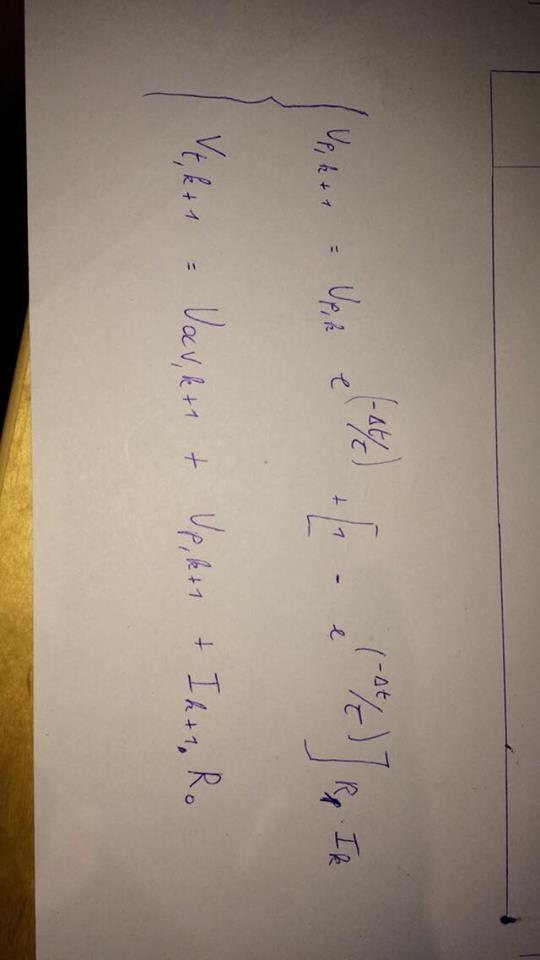 U_{p,k+1} = U_{p,k} e^{(-Δt/τ)} + [1 - e^{(-Δt/τ)}] R_p · I_k
V_{t,k+1} = V_{ocv,k+1} + U_{p,k+1} + I_{k+1} · R_0